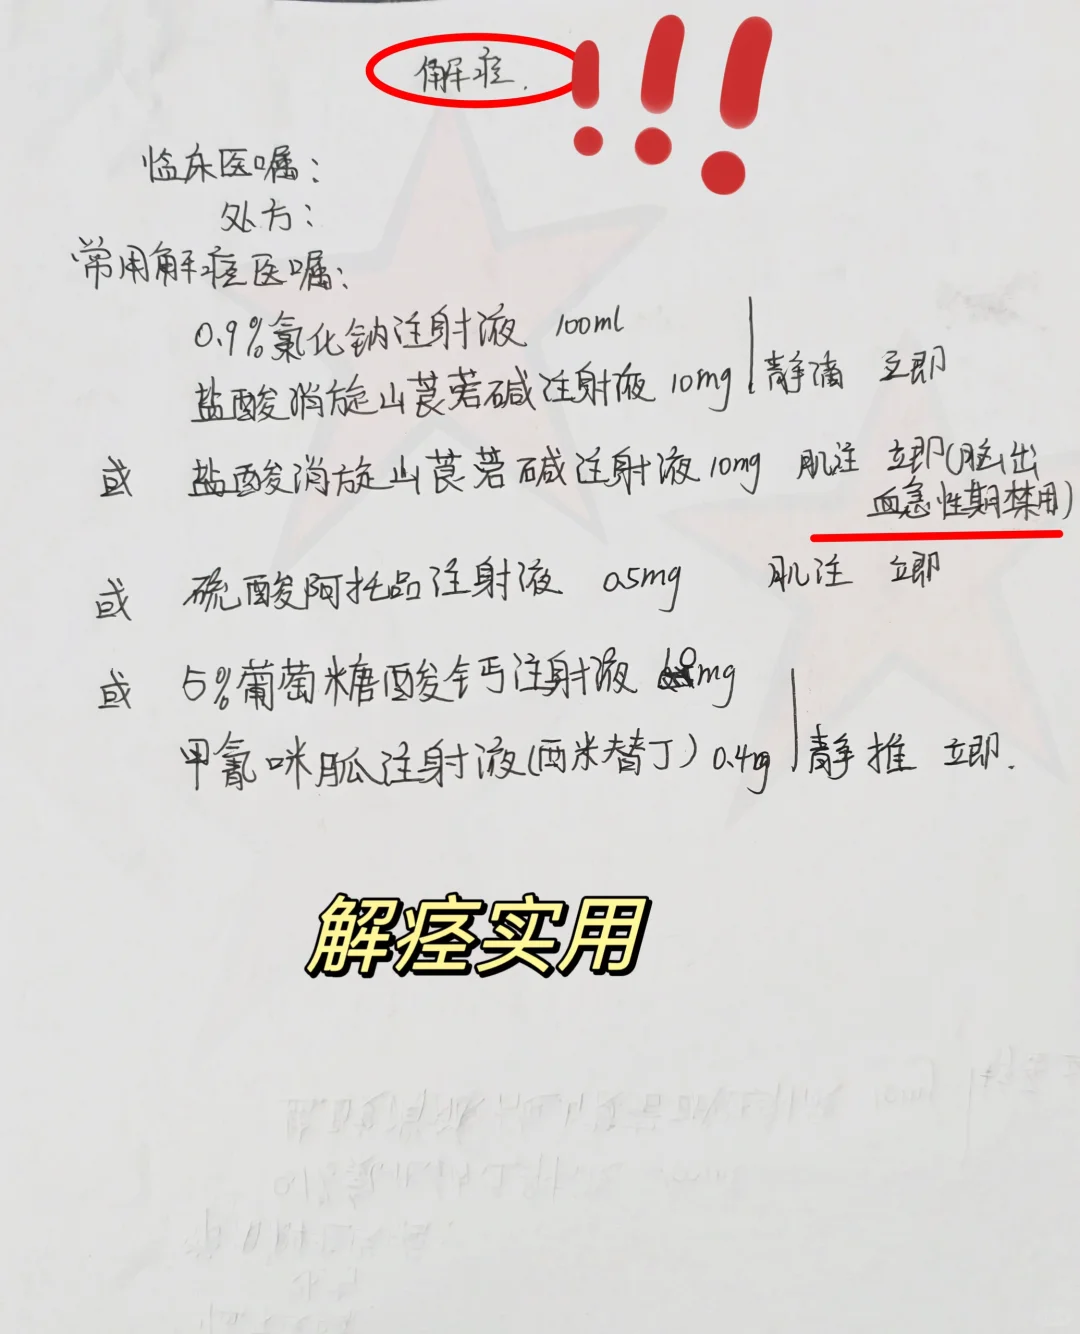 解痉.
临床医嘱:
处方:
常用解痉医嘱:
0.9%氯化钠注射液 100ml
盐酸消旋山莨菪碱注射液 10mg 静滴 立即
或 盐酸消旋山莨菪碱注射液 10mg 肌注 立即(脑出
血急性期禁用)
或 硫酸阿托品注射液 0.5mg 肌注 立即
或 5%葡萄糖酸钙注射液 10mg
甲氰咪胍注射液(西米替丁) 0.4mg 静推 立即.
解痉实用